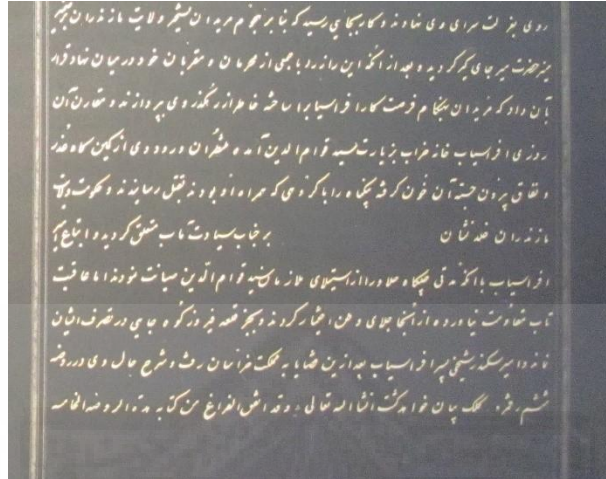 روی بمنزلت سرای وی نهادند و کار بجایی رسید که بنا بر هجوم مریدان تسخیر ولایت مازندران
حضرت میر جای گیر گردیده و بعد از آنکه این راز را با جمعی از محرمان و مقربان خود در میان نهاد قرار
بآن داد که مریدان هنگام فرصت کار افراسیاب را ساخته خاطر از رهگذر وی پردازند و مقارن آن
روزی افراسیاب خانه خراب بزیارت سید قوام الدین آمده منتظران ورود وی از کمین گاه غدر
و نفاق بیرون جسته آن خون گرفته را با گروهی که همراه او بودند بقتل رسانیدند و حکومت
مازندران خلد نشان بر جناب سیادت مآب متعلق گردید و اتباع
افراسیاب با آنکه مدتی را از استیلای ملازمان سید قوام الدین صیانت نمودند اما عاقبت
تاب مقاومت نیاورده از آنجا جلای وطن اختیار کردند و بجز قلعه فیروزکوه جایی در تصرف ایشان
نماند و امیر اسکندر شیخی پسر افراسیاب بعد ازین قضایا به مملکت خراسان رفت و شرح حال وی در روضه
ششم رقم‌زده کلک بیان خواهد گشت انشا الله تعالی وقد اتفق الفراغ من کتابه هذه الروضه الخامسه